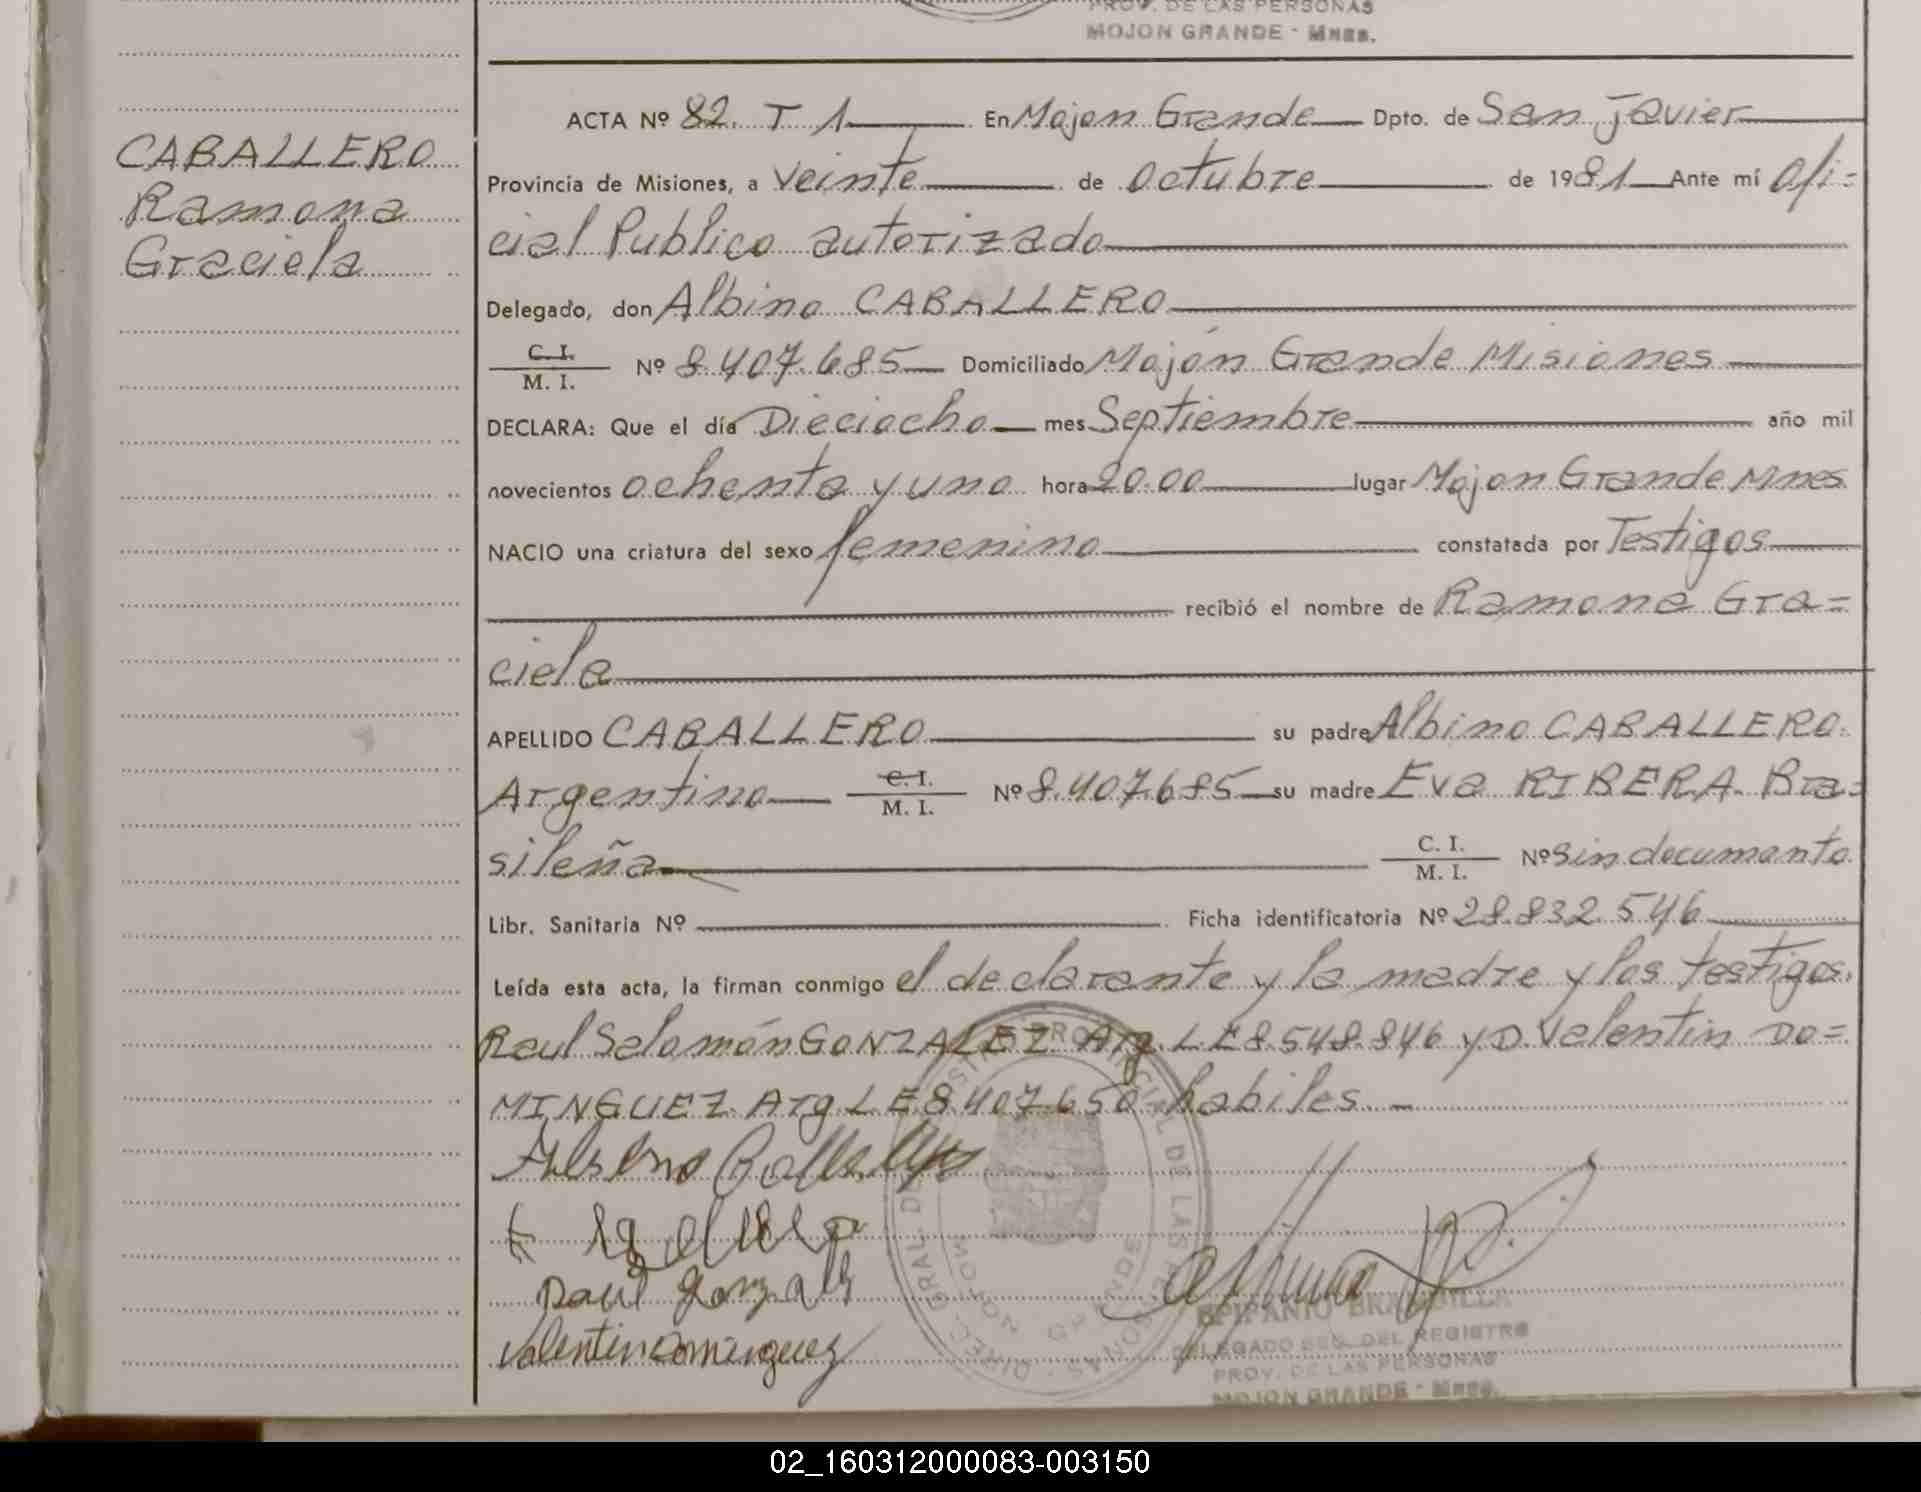 PROV. DE LAS PERSONAS
MOJON GRANDE - MNES.
CABALLERO
Ramona
Graciela
ACTA Nº 82. T 1 En Mojon Grande Dpto. de San Javier
Provincia de Misiones, a Veinte de Octubre de 1981 Ante mí Ofi=
cial Publico autorizado
Delegado, don Albino CABALLERO
C. I.
M. I. Nº 8.407.685 Domiciliado Mojón Grande Misiones
DECLARA: Que el día Dieciocho mes Septiembre año mil
novecientos ochenta y uno hora 20.00 lugar Mojon Grande Mnes
NACIO una criatura del sexo femenino constatada por Testigos
recibió el nombre de Ramona Gra=
ciela
APELLIDO CABALLERO su padre Albino CABALLERO.
Argentino C. I.
M. I. Nº 8.407.685 su madre Eva RIBERA. Bra=
sileña C. I.
M. I. Nº sin documento
Libr. Sanitaria Nº Ficha identificatoria Nº 28.832.546
Leída esta acta, la firman conmigo el declarante y la madre y los testigos.
Raul Salomón GONZALEZ Arg. LE 8.548.846 y D. Valentin DO=
MINGUEZ Arg LE 8407650 habiles. -
Raul Gonzalez
Valentin Dominguez
DIREC. GRAL. DEL REGISTRO PROVINCIAL DE LAS PERSONAS
MOJON GRANDE
EPIFANIO
DELEGADO SEC. DEL REGISTRO
PROV. DE LAS PERSONAS
MOJON GRANDE - MNES.
02_160312000083-003150